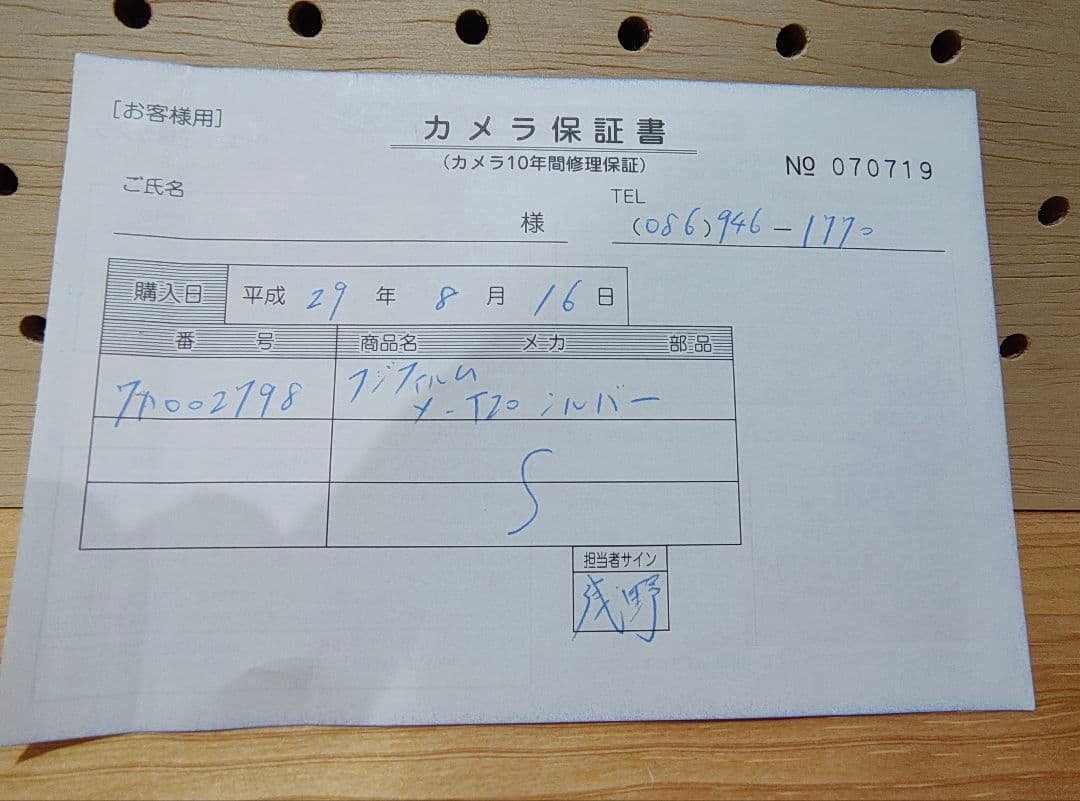 [お客様用]
カメラ保証書
(カメラ10年間修理保証)
№ 070719
ご氏名
様
TEL
(086)946-1770
購入日 平成 29 年 8 月 16 日
番号 商品名 メーカー 部品
002798 フジフイルム
X-T20 シルバー
担当者サイン
浅野